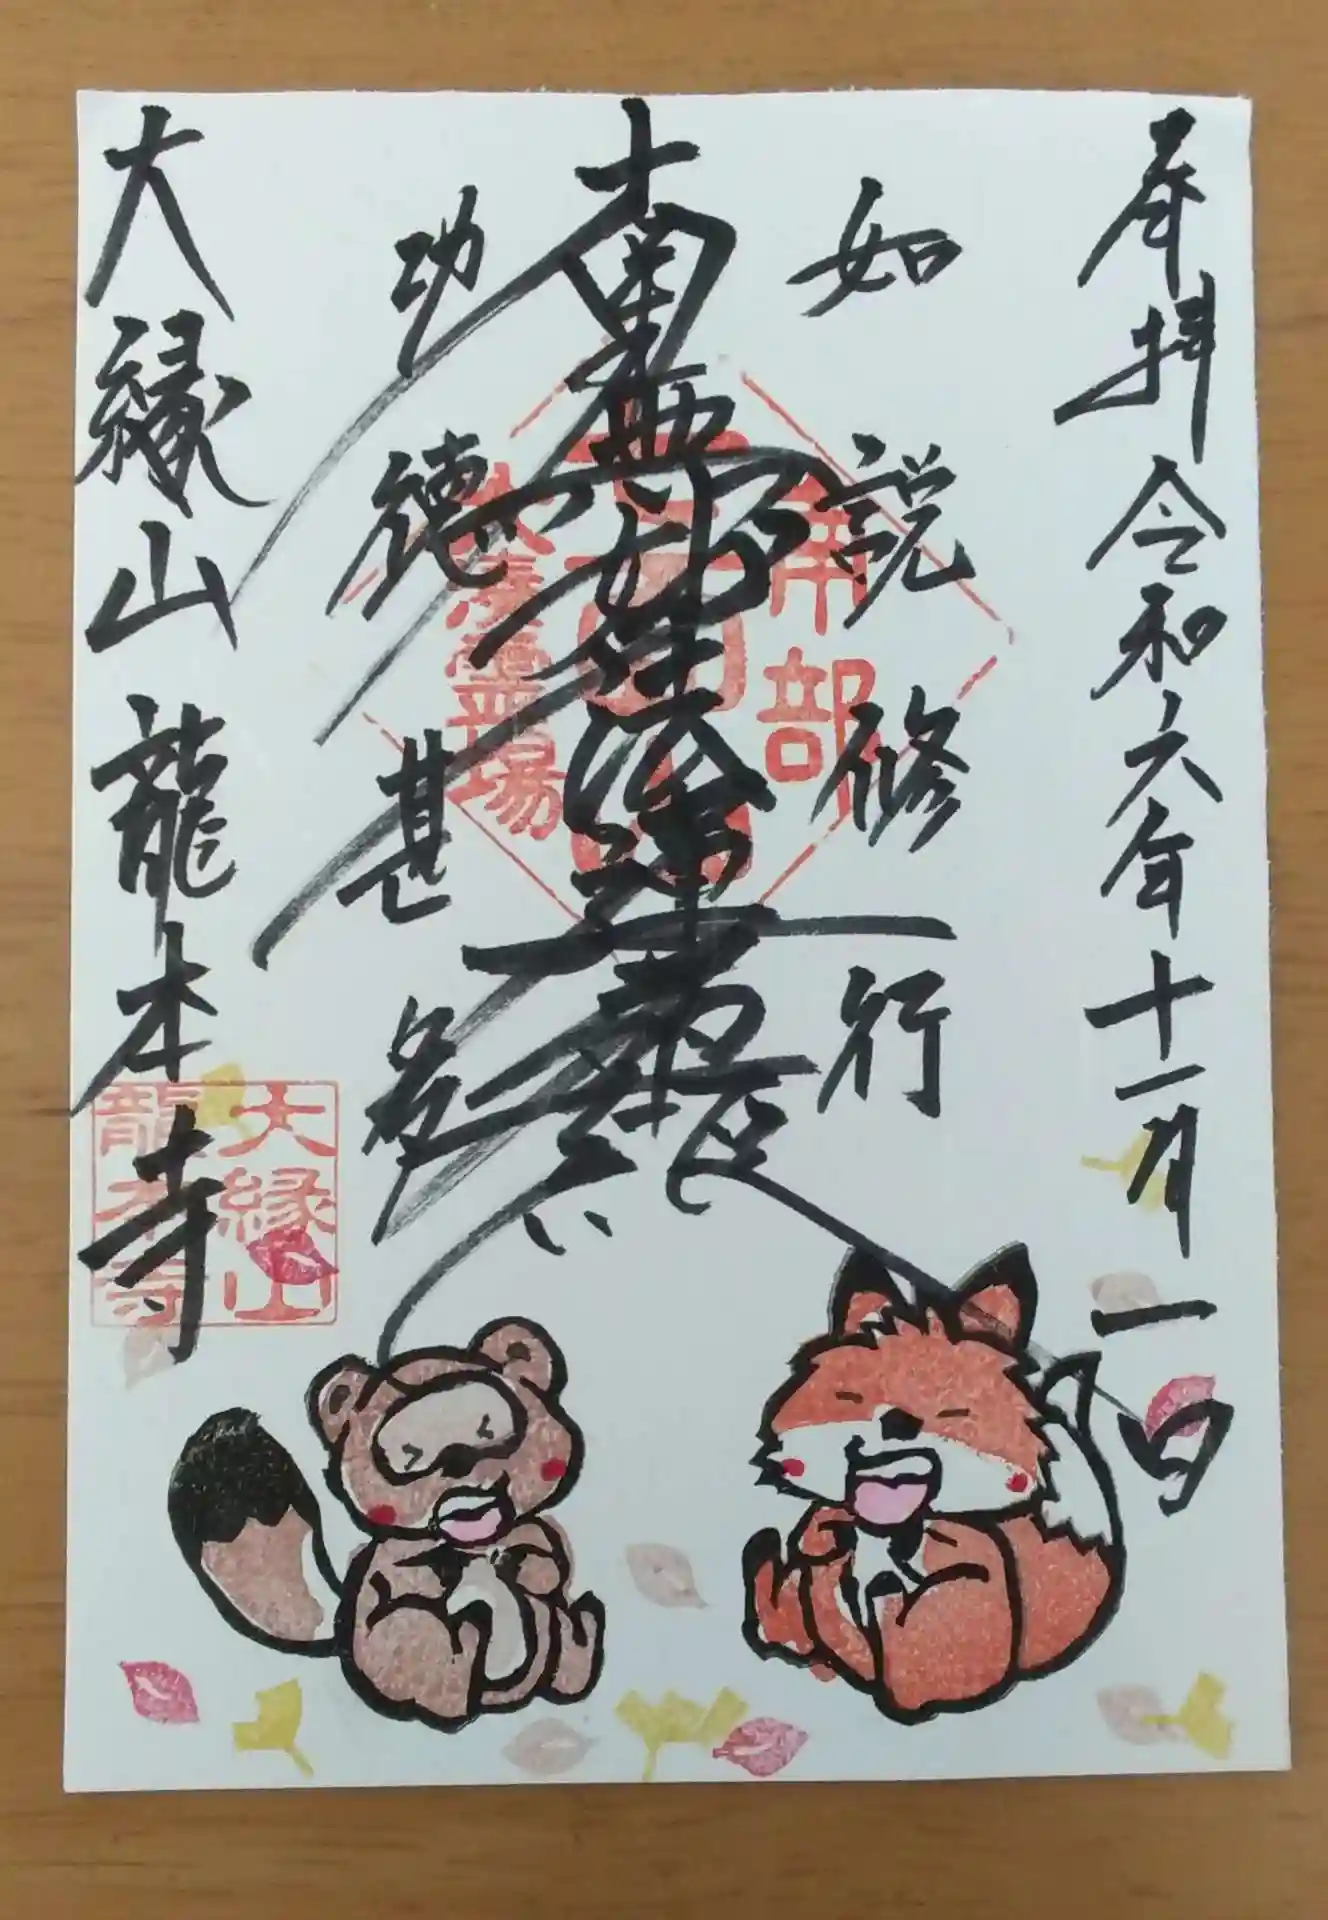 奉拝 令和六年十一月一日
如説修行
南無妙法蓮華経
功徳甚多
大縁山 龍本寺
帝都
大湊霊場
大縁山
龍本寺